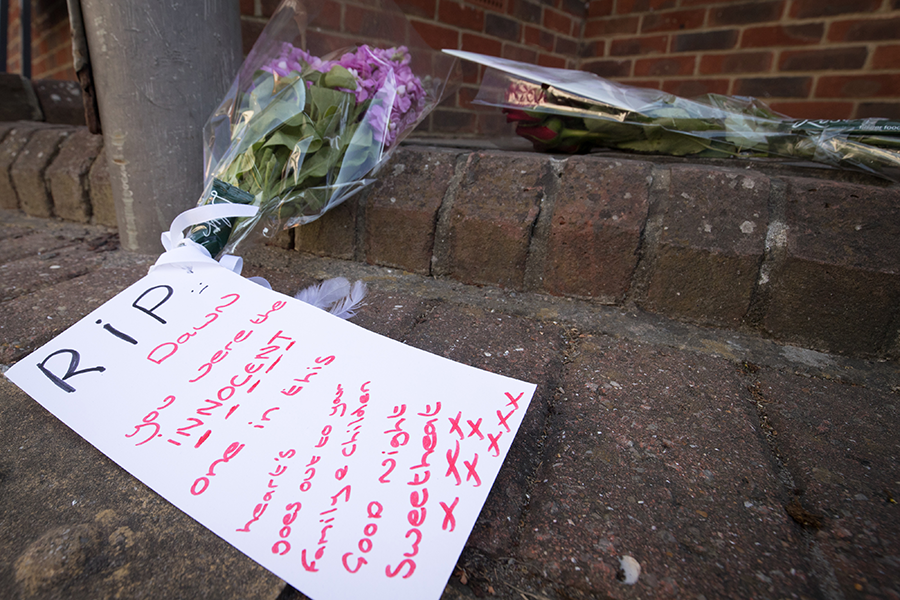 RiP :(
Dawn
you were the
INNOCENT
one in this
heart's
goes out to your
Family & children
Good Night
Sweetheat
x x x x
x x x x